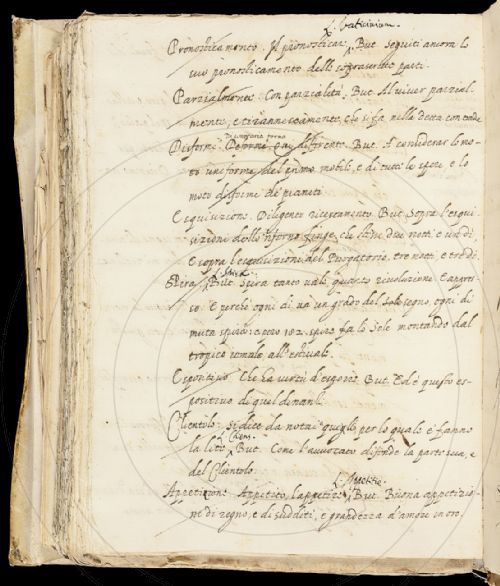 L. Vaticinium.
Pronosticamento. Il pronosticar. But. Seguiti ancora lo
suo pronosticamento delle parti.
Parzialmente. Con parzialità. But. Al viver parzial-
mente, e tirannescamente, che si fa nelle dette contrade
Di uniforme forma
Disforme. differente. But. A considerar lo mo-
to uniforme del primo mobile, e di tutte le spere, e lo
moto disforme de' pianeti
Esquisizione. Diligente ricercamento. But. Sopra l'esqui-
sizione dello 'nferno finge, che stesse due notti, e un dì
E sopra l'esquisizione del Purgatorio, tre notti, e tre dì.
L. Spira
Spira. But. Spira tanto vale, quanto rivoluzione. E appres-
so. E perchè ogni dì va un grado del Sole segno, ogni dì
muta spira: e però 182. spire fa lo Sole montando dal
tropico iemale, all'estivale.
Espositivo. Che ha virtù d'esporre. But. Ed è questo es-
positivo di quel dinanzi.
Clientolo. Si dice da notai quegli, per lo quale e' fanno
L. Cliens.
la lite. But. Come l'avvocato difende la parte sua, e
del Clientolo.
L. Appetitio
Appetizione. Appetito, l'appetire. But. Buona appetizio-
ne di regno, e di sudditi, e grandezza d'amore in oro.